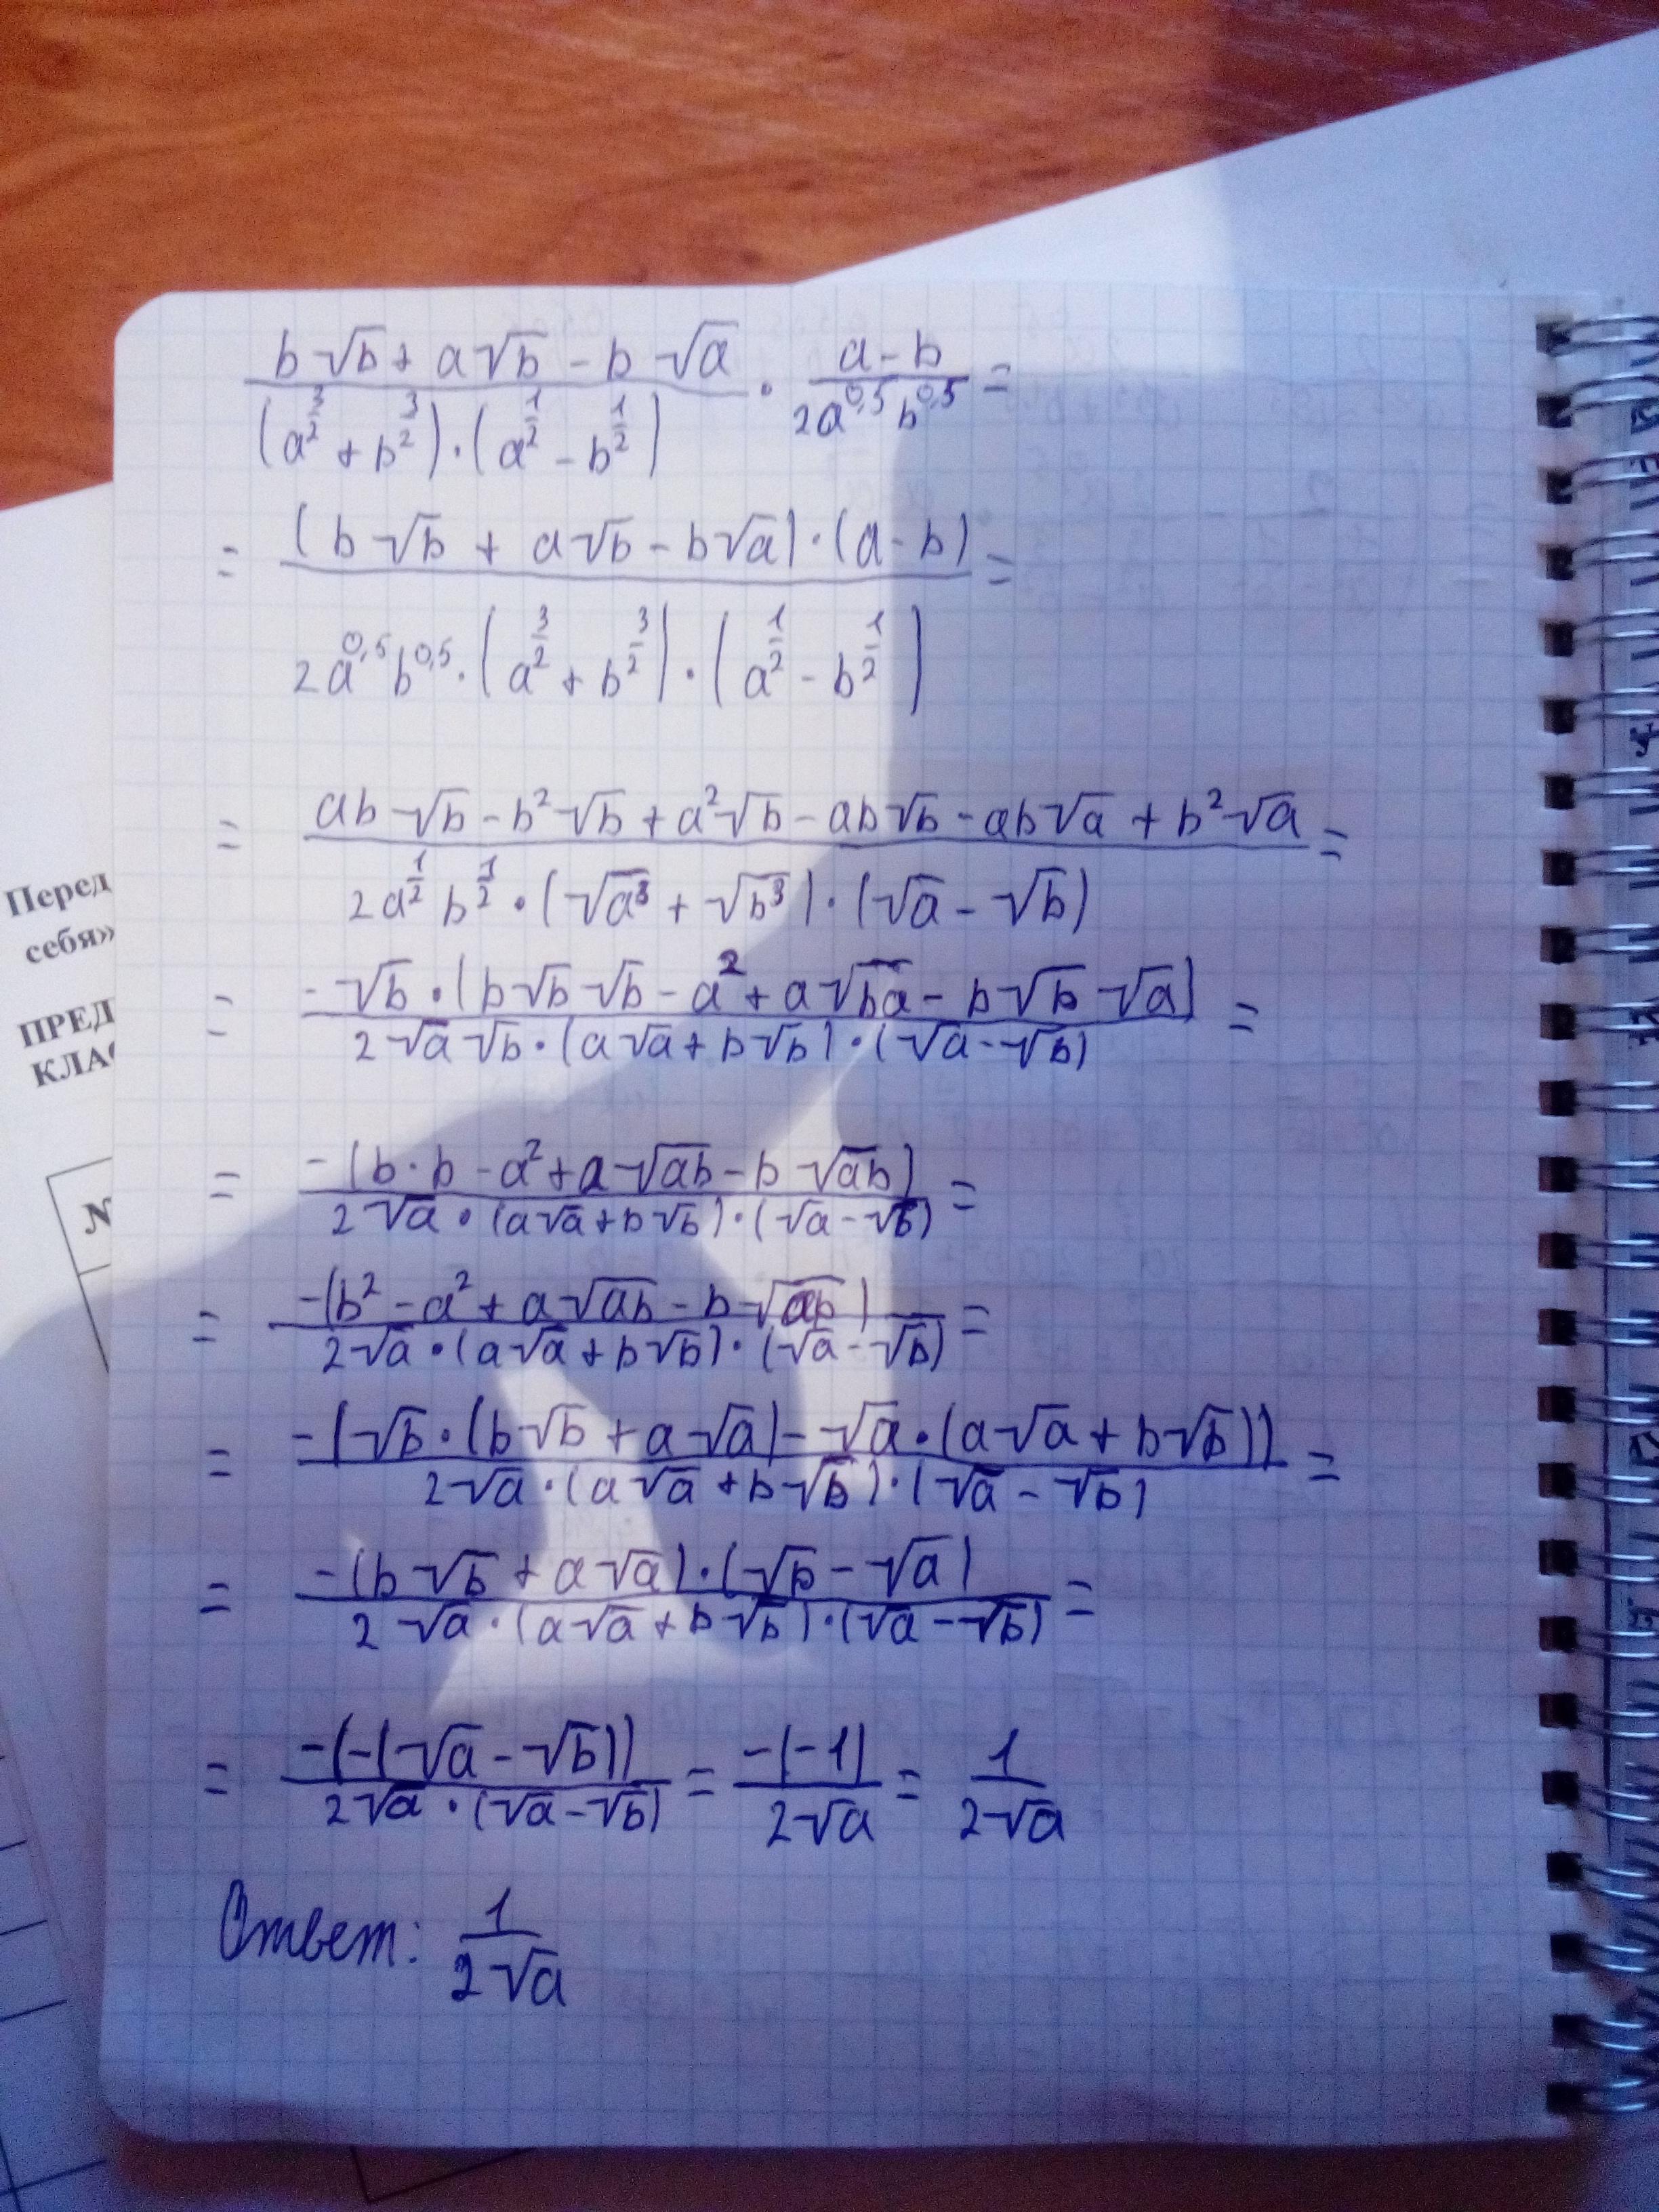 (b√b + a√b − b√a)/((a^(3/2) + b^(3/2))·(a^(1/2) − b^(1/2))) · (a − b)/(2a^0,5 b^0,5) =
= ((b√b + a√b − b√a)·(a − b))/(2a^0,5 b^0,5·(a^(3/2) + b^(3/2))·(a^(1/2) − b^(1/2))) =
= (ab√b − b²√b + a²√b − ab√b − ab√a + b²√a)/(2a^(1/2) b^(1/2)·(√a³ + √b³)·(√a − √b)) =
= (−√b·(b√b√b − a² + a√ba − b√b√a))/(2√a√b·(a√a + b√b)·(√a − √b)) =
= (−(b·b − a² + a√ab − b√ab))/(2√a·(a√a + b√b)·(√a − √b)) =
= (−(b² − a² + a√ab − b√ab))/(2√a·(a√a + b√b)·(√a − √b)) =
= (−(√b·(b√b + a√a) − √a·(a√a + b√b)))/(2√a·(a√a + b√b)·(√a − √b)) =
= (−(b√b + a√a)·(√b − √a))/(2√a·(a√a + b√b)·(√a − √b)) =
= (−(−(√a − √b)))/(2√a·(√a − √b)) = (−(−1))/(2√a) = 1/(2√a)
Ответ: 1/(2√a)
Перед
себя»
ПРЕД
КЛАС
№